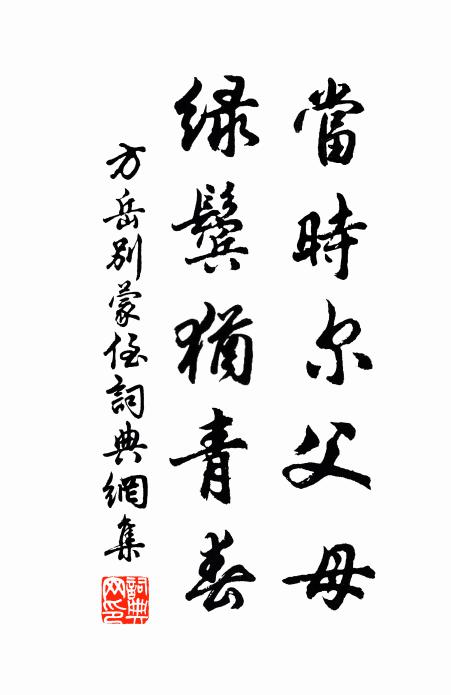 當時尔父母
緑鬢猶青春
方岳别蒙侄詞典網集
詞典网印